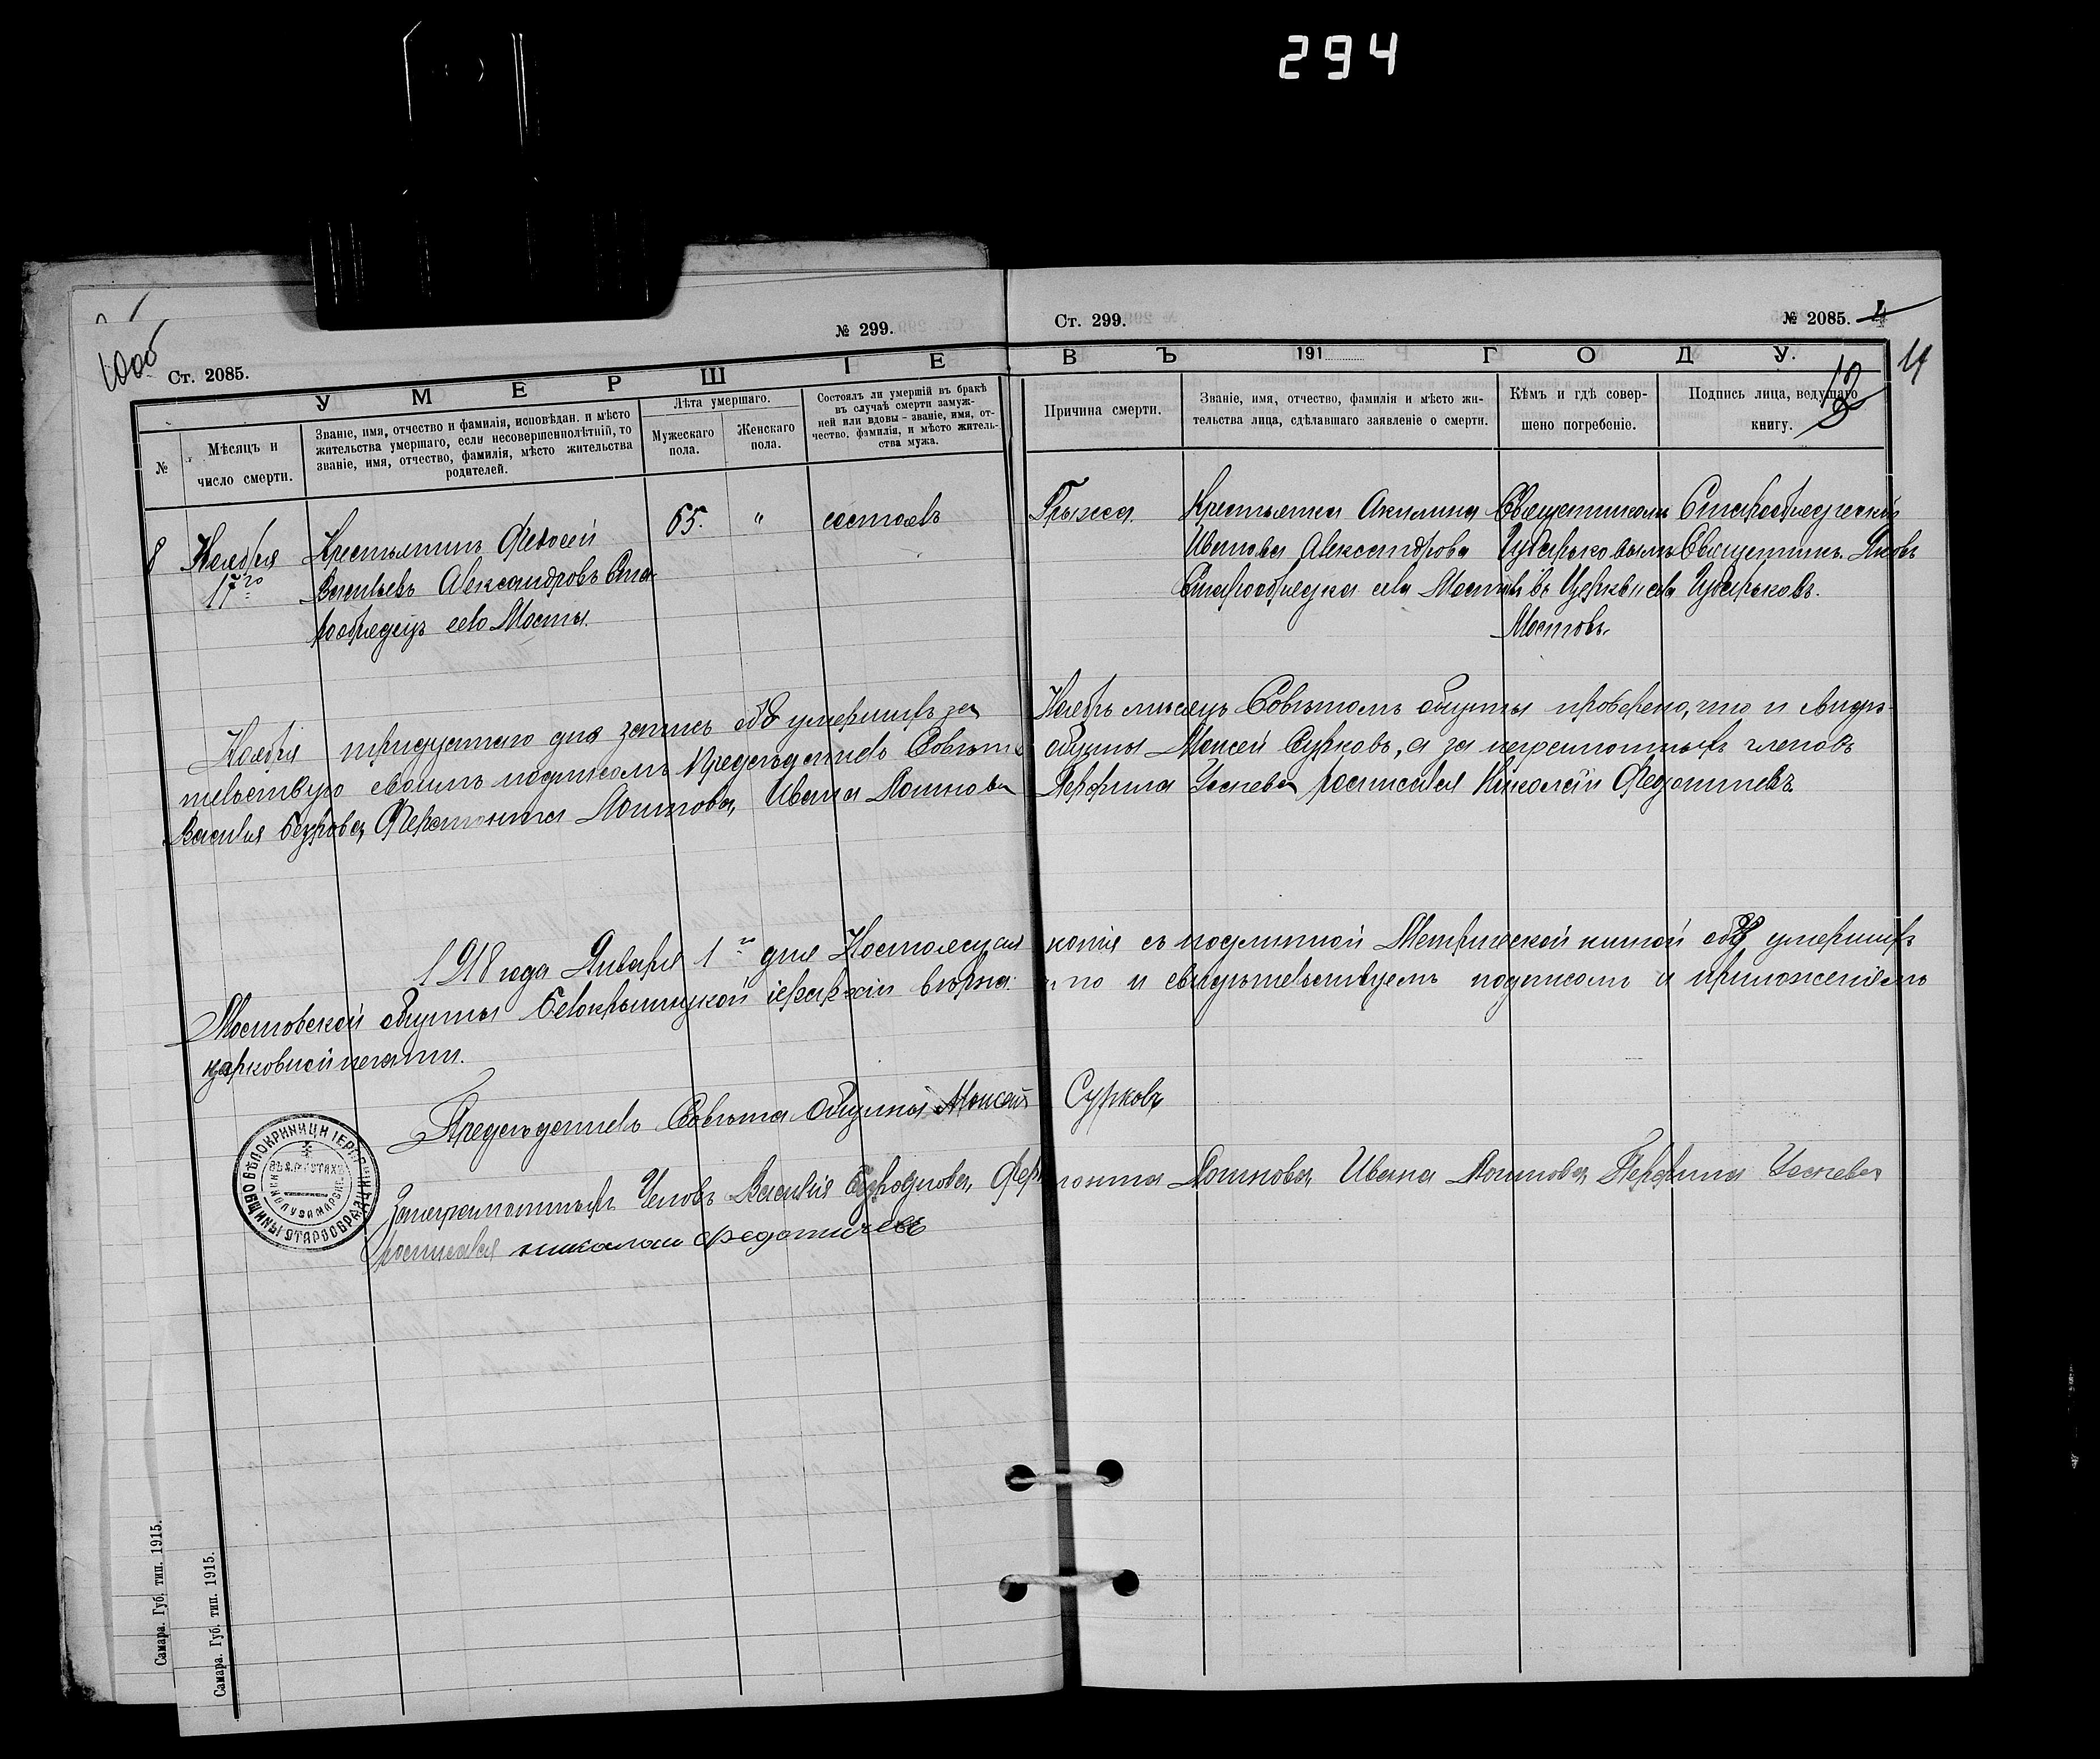 294
№ 299.
Ст. 299.
№ 2085. 4
Ст. 2085.
У М Е Р Ш І Е
В Ъ 191 Г О Д У.
4
№
Мѣсяцъ и число смерти.
Званіе, имя, отчество и фамилія, исповѣдан. и мѣсто
жительства умершаго, если несовершеннолѣтній, то
званіе, имя, отчество, фамилія, мѣсто жительства
родителей.
Лѣта умершаго.
Мужескаго
пола.
Женскаго
пола.
Состоялъ ли умершій въ бракѣ
въ случаѣ смерти замуж-
ней или вдовы – званіе, имя, от-
чество, фамилія, и мѣсто житель-
ства мужа.
Причина смерти.
Званіе, имя, отчество, фамилія и мѣсто жи-
тельства лица, сдѣлавшаго заявленіе о смерти.
Кѣмъ и гдѣ совер-
шено погребеніе.
Подпись лица, ведущаго
книгу.
8
Ноября
17го
Крестьянинъ Федосей
Васильевъ Александровъ Ста-
рообрядецъ села Мосты.
65.
"
состоялъ
Грыжа.
Крестьянка Акилина
Иванова Александрова
Старообрядка села Мостовъ
Священникомъ
Цибарьковымъ
въ Церкви села
Мостовъ.
Старообрядческой
Священникъ Яковъ
Цибарьковъ.
Ноября тридцатаго дня запись объ умершихъ за
Ноябрь мѣсяцъ Совѣтомъ общины провѣрено, что и свидѣ-
тельствую своимъ подписомъ Предсѣдатель Совѣта
общины Моисей Сурковъ, а за неграмотныхъ членовъ
Василія Ферапонта Логинова, Ивана Логинова
Перфила росписался Николай Федотичевъ
1918 года Января 1го дня Настоящая
копія съ подлинной Метрической книгой объ умершихъ
Мостовской общины Белокрыницкой іерархіи вѣрна
что и свидѣтельствуемъ подписомъ и приложеніемъ
церковной печати.
Предсѣдатель Совѣта Общины Моисей Сурковъ
Занеграмотныхъ Членовъ Василія Ферапонта Логинова, Ивана Логинова, Перфила
росписался николаи Федотичевъ
Самара. Губ. тип. 1915.
Самара. Губ. тип. 1915.